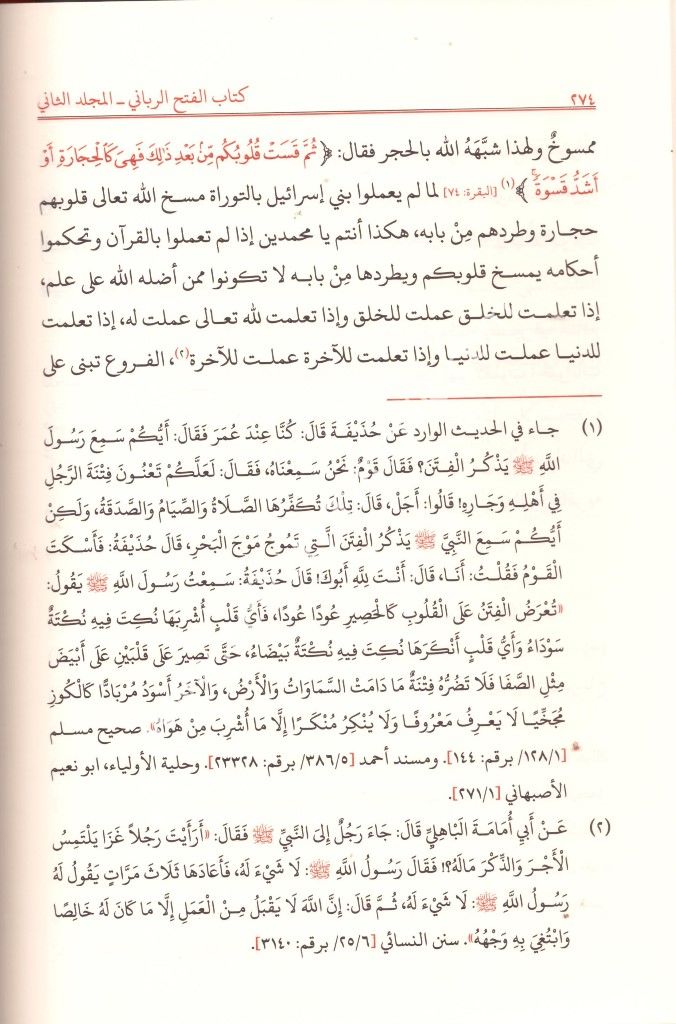 ٢٧٤ كتاب الفتح الرباني - المجلد الثاني
ممسوخٌ ولهذا شبَّهَهُ الله بالحجر فقال: ﴿ ثُمَّ قَسَتْ قُلُوبُكُم مِّنۢ بَعْدِ ذَٰلِكَ فَهِىَ كَٱلْحِجَارَةِ أَوْ
أَشَدُّ قَسْوَةً ۚ ﴾(١) [البقرة: ٧٤] لما لم يعملوا بني إسرائيل بالتوراة مسخ الله تعالى قلوبهم
حجارة وطردهم مِنْ بابه، هكذا أنتم يا محمدين إذا لم تعملوا بالقرآن وتحكموا
أحكامه يمسخ قلوبكم ويطردها مِنْ بابه لا تكونوا ممن أضله الله على علم،
إذا تعلمت للخلق عملت للخلق وإذا تعلمت لله تعالى عملت له، إذا تعلمت
للدنيا عملت للدنيا وإذا تعلمت للآخرة عملت للآخرة(٢)، الفروع تبنى على
(١) جاء في الحديث الوارد عَنْ حُذَيْفَةَ قَالَ: كُنَّا عِنْدَ عُمَرَ فَقَالَ: أَيُّكُمْ سَمِعَ رَسُولَ
اللَّهِ ﷺ يَذْكُرُ الْفِتَنَ؟ فَقَالَ قَوْمٌ: نَحْنُ سَمِعْنَاهُ، فَقَالَ: لَعَلَّكُمْ تَعْنُونَ فِتْنَةَ الرَّجُلِ
فِي أَهْلِهِ وَجَارِهِ! قَالُوا: أَجَلْ، قَالَ: تِلْكَ تُكَفِّرُهَا الصَّلَاةُ وَالصِّيَامُ وَالصَّدَقَةُ، وَلَكِنْ
أَيُّكُمْ سَمِعَ النَّبِيَّ ﷺ يَذْكُرُ الْفِتَنَ الَّتِي تَمُوجُ مَوْجَ الْبَحْرِ، قَالَ حُذَيْفَةُ: فَأَسْكَتَ
الْقَوْمُ فَقُلْتُ: أَنَا، قَالَ: أَنْتَ لِلَّهِ أَبُوكَ! قَالَ حُذَيْفَةُ: سَمِعْتُ رَسُولَ اللَّهِ ﷺ يَقُولُ:
«تُعْرَضُ الْفِتَنُ عَلَى الْقُلُوبِ كَالْحَصِيرِ عُودًا عُودًا، فَأَيُّ قَلْبٍ أُشْرِبَهَا نُكِتَ فِيهِ نُكْتَةٌ
سَوْدَاءُ وَأَيُّ قَلْبٍ أَنْكَرَهَا نُكِتَ فِيهِ نُكْتَةٌ بَيْضَاءُ، حَتَّى تَصِيرَ عَلَى قَلْبَيْنِ عَلَى أَبْيَضَ
مِثْلِ الصَّفَا فَلَا تَضُرُّهُ فِتْنَةٌ مَا دَامَتْ السَّمَاوَاتُ وَالْأَرْضُ، وَالْآخَرُ أَسْوَدُ مُرْبَادًّا كَالْكُوزِ
مُجَخِّيًا لَا يَعْرِفُ مَعْرُوفًا وَلَا يُنْكِرُ مُنْكَرًا إِلَّا مَا أُشْرِبَ مِنْ هَوَاهُ». صحيح مسلم
[١/١٢٨/ برقم: ١٤٤]. ومسند أحمد [٥/٣٨٦/ برقم: ٢٣٣٢٨]. وحلية الأولياء، ابو نعيم
الأصبهاني [١/٢٧١].
(٢) عَنْ أَبِي أُمَامَةَ الْبَاهِلِيِّ قَالَ: جَاءَ رَجُلٌ إِلَى النَّبِيِّ ﷺ فَقَالَ: «أَرَأَيْتَ رَجُلًا غَزَا يَلْتَمِسُ
الْأَجْرَ وَالذِّكْرَ مَالَهُ؟! فَقَالَ رَسُولُ اللَّهِ ﷺ: لَا شَيْءَ لَهُ، فَأَعَادَهَا ثَلَاثَ مَرَّاتٍ يَقُولُ لَهُ
رَسُولُ اللَّهِ ﷺ: لَا شَيْءَ لَهُ، ثُمَّ قَالَ: إِنَّ اللَّهَ لَا يَقْبَلُ مِنْ الْعَمَلِ إِلَّا مَا كَانَ لَهُ خَالِصًا
وَابْتُغِيَ بِهِ وَجْهُهُ». سنن النسائي [٦/٢٥/ برقم: ٣١٤٠].